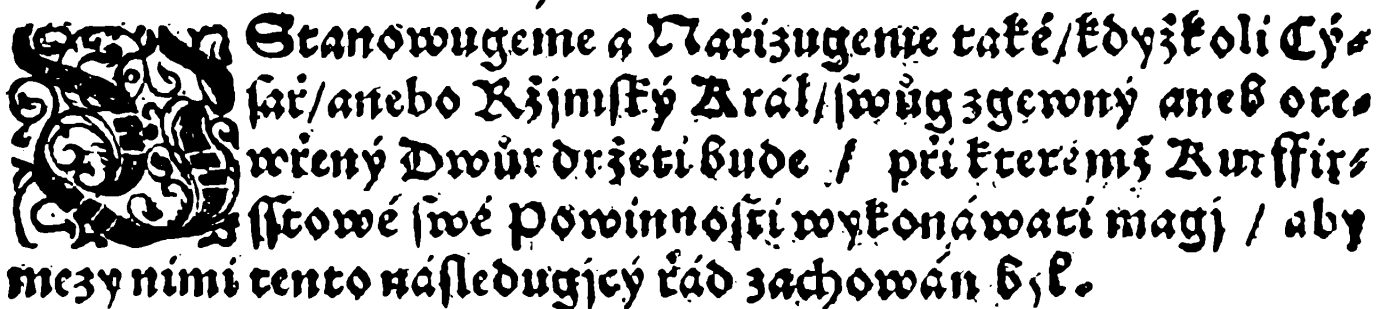 Stanowugeme a Nařizugeme také/kdyžkoli Cý⸗
ſař/anebo Ržjmſký Král/ſwůg zgewný aneb ote⸗
wřený Dwůr držeti bude / při kterémž Kurffir⸗
ſſtowé ſwé Powinnoſti wykonáwati magj / aby
mezy nimi tento náſledugjcý řád zachowán byl.